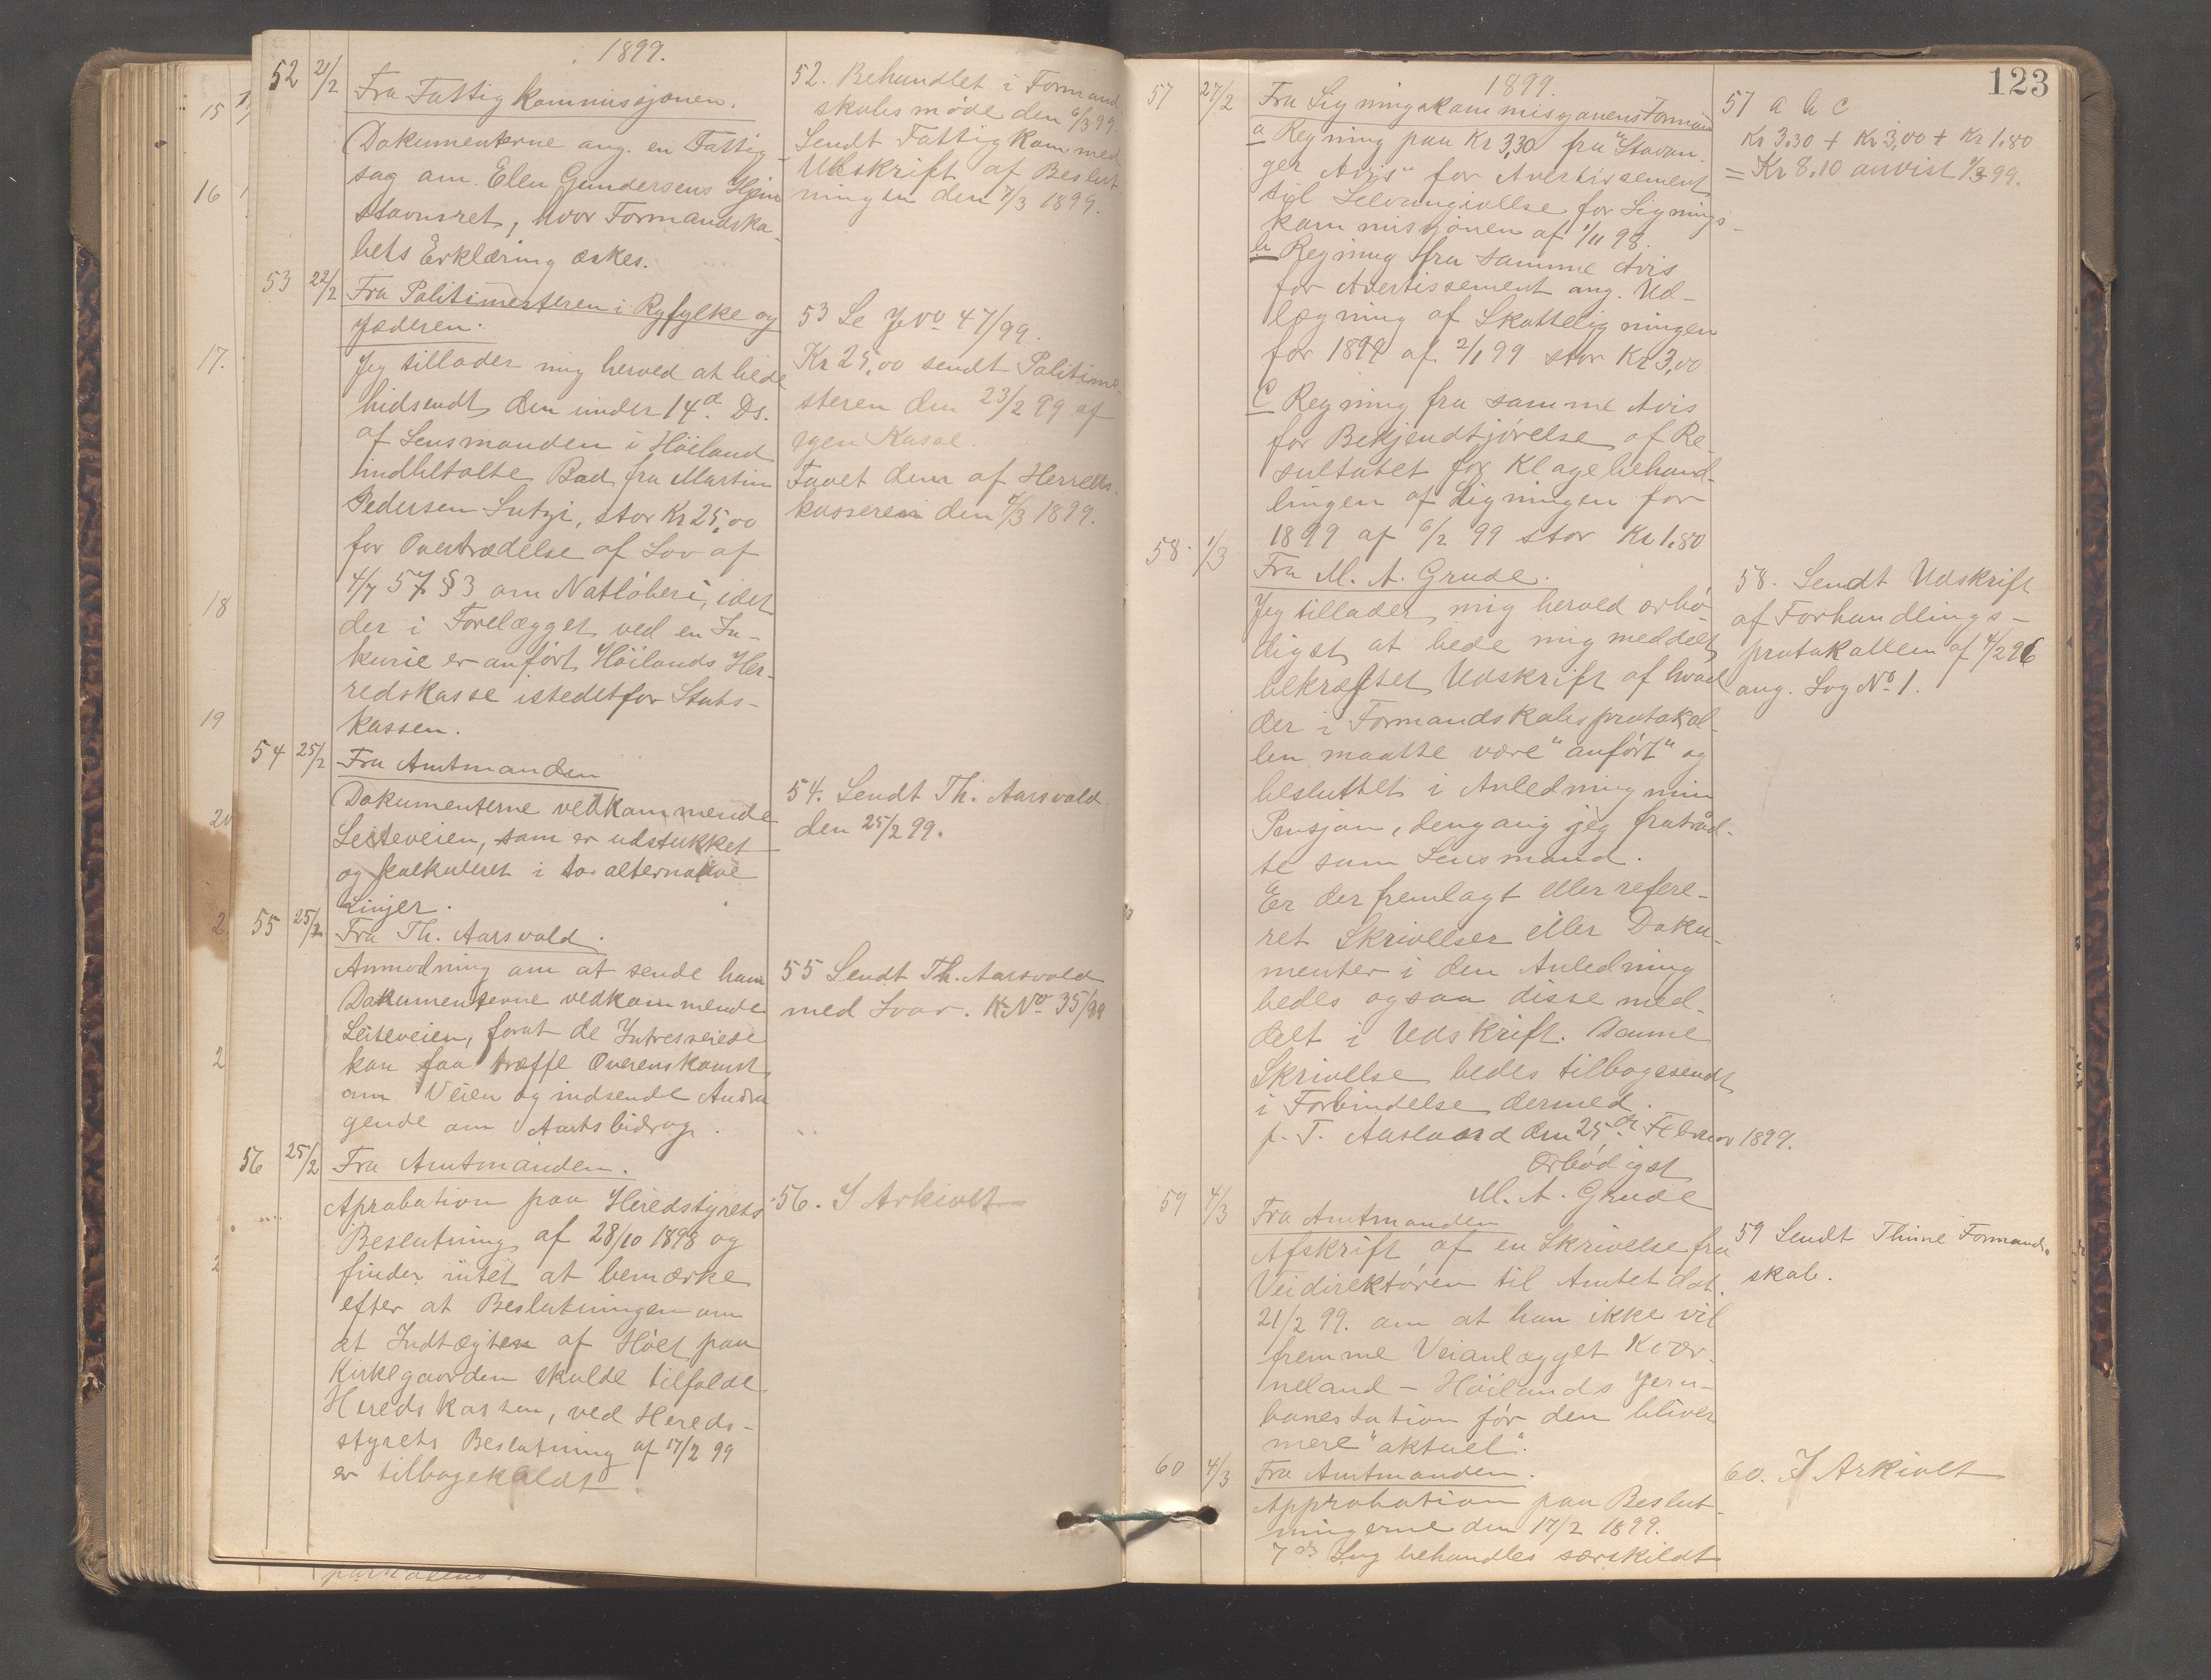 1899.
52 21/2 Fra Fattigkommissjonen.
Dokumenterne ang. en Fattig-
sag om Ellen Gundersens Hjem
stavnsret, hvor Formandska-
bets Erklæring æskes.
52. Behandlet i Formand
skabsmöde den 6/3 99.
Sendt Fattigkom med
Udskrift af Beslut
ningen den 7/3 1899.
53 22/2 Fra Politimesteren i Ryfylke og
Jæderen.
Jeg tillader mig herved at bede
hidsendt den under 14de Ds.
af Lensmanden i Höiland
indbetalte Bod fra Martin
Pedersen, stor Kr 25,00
for Overtrædelse af Lov af
4/7 57 § 3 om Natløberi, idet
der i Forelægget ved en In-
kurie er anført Höilands Her-
redskasse istedetfor Stats-
kassen.
53 Se No 47/99.
Kr 25,00 sendt Politime-
steren den 23/2 99 af
egen Kasse.
Faaet dem af Herreds-
kasseren den 4/3 1899.
54 25/2 Fra Amtmanden
Dokumenterne vedkommende
Leiteveien, som er udstukket
og kalkuleret i to alternative
Linjer.
54. Sendt Th. Aarsvold
den 25/2 99.
55 25/2 Fra Th. Aarsvold.
Anmodning om at sende ham
Dokumenterne vedkommende
Leiteveien, forat de Intresserede
kan faa træffe Overenskomst
om Veien og indsende Andra
gende om Amtsbidrag.
55 Sendt Th. Aarsvold
med Svar. K No 35/99
56 25/2 Fra Amtmanden.
Aprobation paa Heredstyrets
Beslutning af 28/10 1898 og
finder intet at bemærke
efter at Beslutningen om
at Indtægten af Höet paa
Kirkegaarden skulde tilfalde
Heredskassen, ved Hereds-
styrets Beslutning af 17/2 99
er tilbagekaldt
56. I Arkivet
15
16
17.
18
19
20
2
2
2
123
1899.
57 27/2 Fra Ligningskommissjonens Formand
a Regning paa Kr 3,30 fra "Stavan-
ger Avis" for Avertissement
til Selvangivelse for Lignings-
kommissjonen af 1/11 98.
b Regning fra samme Avis
for Avertissement ang. Ud-
lægning af Skatteligningen
for 1899 af 2/1 99 stor Kr 3,00
c Regning fra samme Avis
for Bekjendtjörelse af Re-
sultatet for Klagebehand-
lingen af Ligningen for
1899 af 6/2 99 stor Kr 1,80
57 a b c
Kr 3,30 + Kr 3,00 + Kr 1,80
= Kr 8,10 anvist 1/3 99.
58. 1/3 Fra M. A. Grude.
Jeg tillader mig herved ærbö-
digst at bede mig meddelt
bekræftet Udskrift af hvad
der i Formandskabsprotokol-
len maatte være "anført" og
besluttet i Anledning min
Pensjon, dengang jeg fratråd-
te som Lensmand.
Er der fremlagt eller refere-
ret Skrivelser eller Doku-
menter i den Anledning
bedes ogsaa disse med-
delt i Udskrift. Denne
Skrivelse bedes tilbagesendt
i Forbindelse dermed.
p. T. den 25de Februar 1899.
Ærbödigst
M. A. Grude
58. Sendt Udskrift
af Forhandlings-
protokollen af 4/2 96
ang. Sag No 1.
59 4/3 Fra Amtmanden
Afskrift af en Skrivelse fra
Veidirektören til Amtet dat.
21/2 99. om at han ikke vil
fremme Veianlægget Kvær-
neland - Höilands Jern-
banestation før den bliver
mere "aktuel".
59 Sendt Thime Formand-
skab.
60 4/3 Fra Amtmanden.
Approbation paa Beslut-
ningerne den 17/2 1899.
7de Sag behandles særskildt
60. I Arkivet